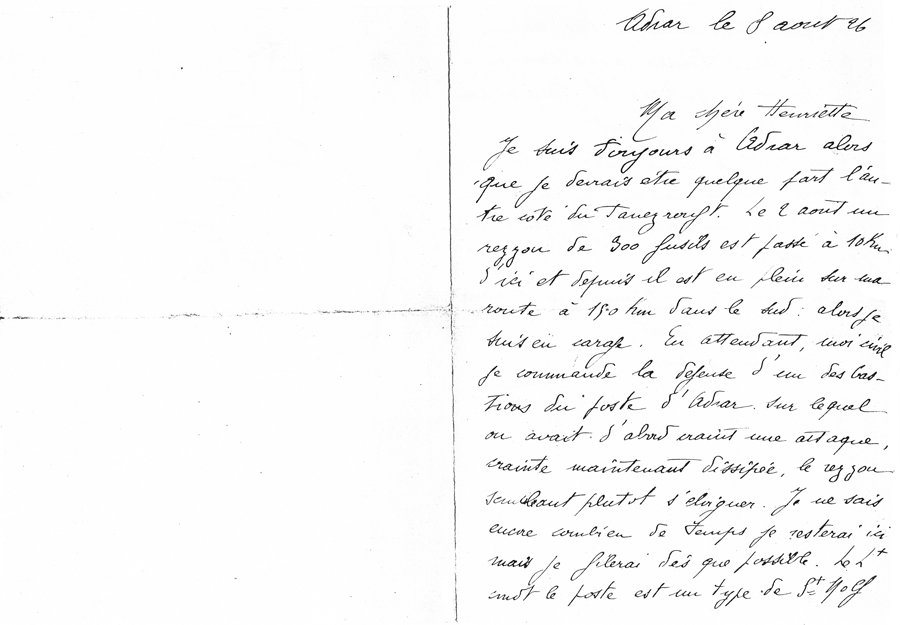 Adrar le 8 aout 26
Ma chère Henriette
Je suis toujours à Adrar alors
que je devrais etre quelque part l'au-
tre coté du Tanezrouft. Le 2 aout un
rezzou de 300 fusils est passé à 10 Km
d'ici et depuis il est en plein sur ma
route à 150 km dans le sud : alors je
suis en carafe. En attendant, moi civil
je commande la défense d'un des bas-
tions du poste d'Adrar sur lequel
on avait d'abord craint une attaque,
crainte maintenant dissipée, le rezzou
semblant plutot s'éloigner. Je ne sais
encore combien de temps je resterai ici
mais je filerai dés que possible. Le Lt
cmdt le poste est un type de St Molf